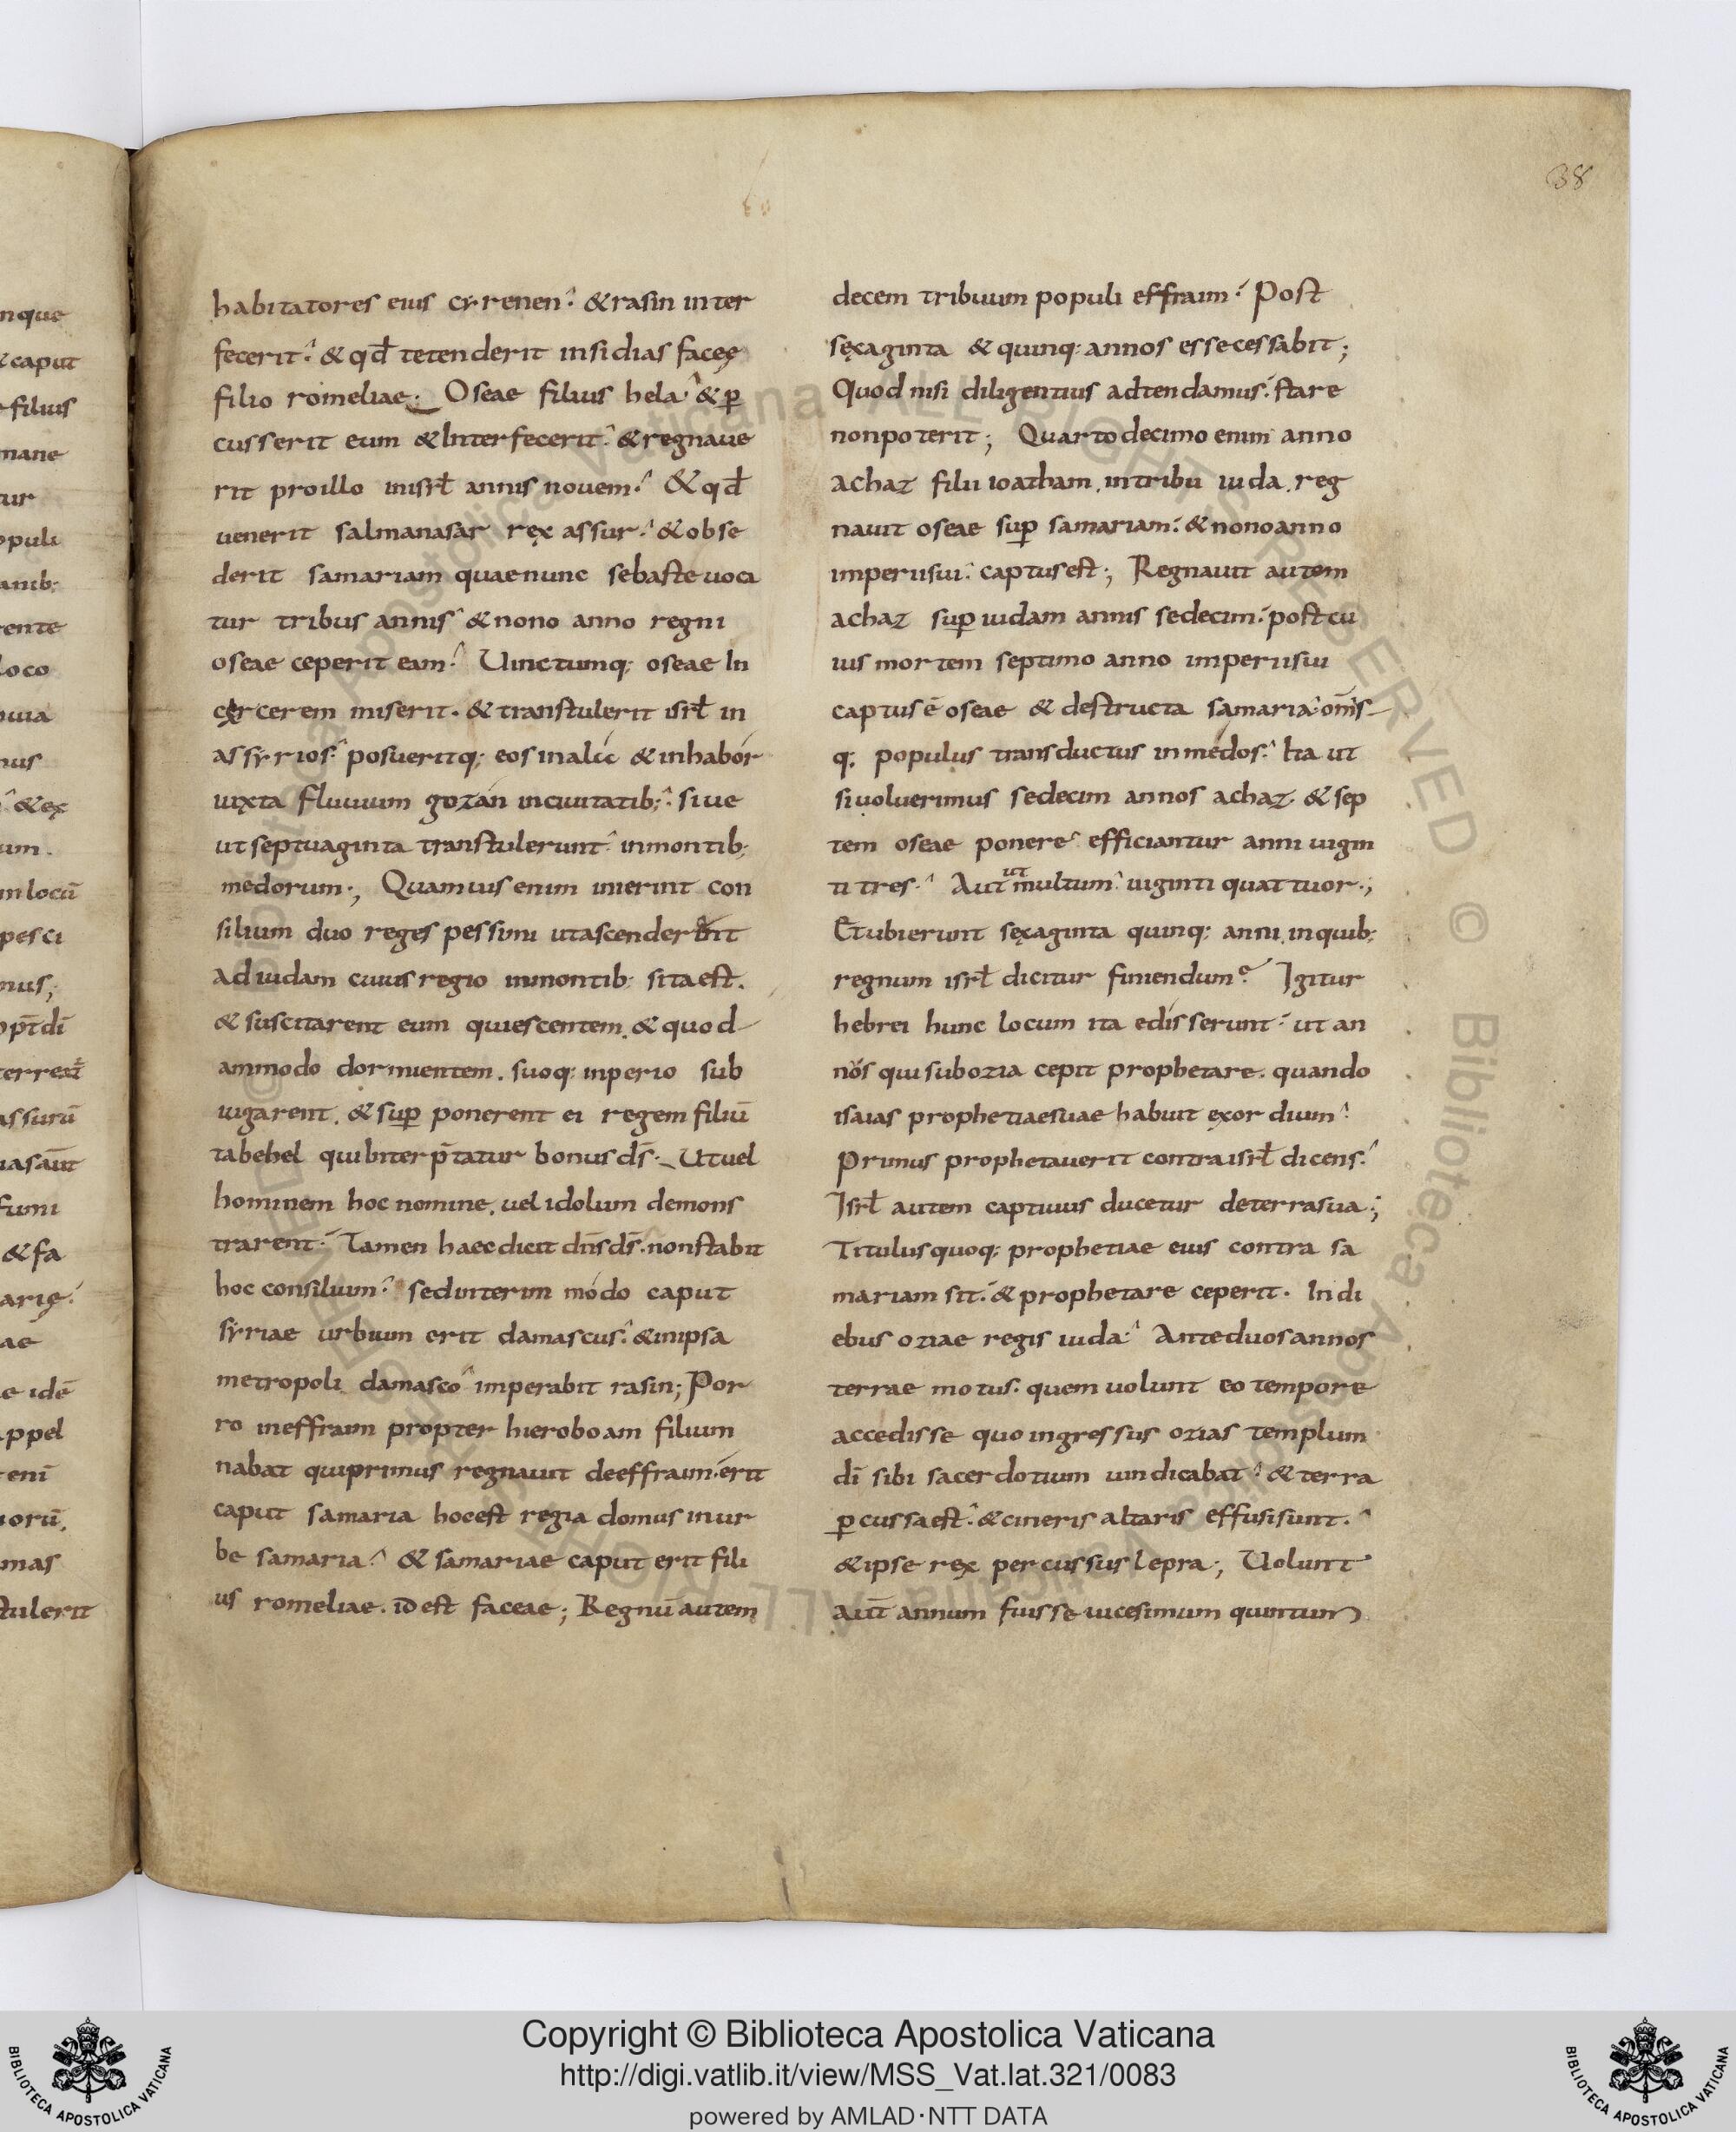 38
habitatores eius cyrenen. & rasin inter
fecerit. & qđ tetenderit insidias faceę
filio romeliae. Oseae filius hela & p̱
cusserit eum & Interfecerit. & regnaue
rit pro illo in isrł annis nouem. & qđ
uenerit salmanasar rex assur. & obse
derit samariam quae nunc sebaste uoca
tur tribus annis & nono anno regni
oseae ceperit eam. Uinctumq; oseae In
carcerem miserit. & transtulerit isrł in
assyrios. posueritq; eos in alác & in habór
iuxta fluuium gozán in ciuitatib;. siue
ut septuaginta transtulerunt in montib;
medorum., Quamuis enim inierint con
silium duo reges pessimi ut ascenderent
ad iudam cuius regio in montib; sita est.
& suscitarent eum quiescentem. & quod
ammodo dormientem. suoq; inperio sub
iugarent. & sup̱ ponerent ei regem filiū
tabehel qui Interp̄tatur bonus d̄s. Ut uel
hominem hoc nomine. uel idolum demons
trarent. Tamen haec dicit dn̄s d̄s. non stabit
hoc consilium. sed interim módo caput
syriae urbium erit damascus. & in ipsa
metropoli damasco imperabit rasin; Por
ro in effraim propter hieroboam filium
nabat qui primus regnauit de effraim. erit
caput samaria hoc est regia domus in ur
be samaria. & samariae caput erit fili
us romeliae. id est faceae; Regnū autem
decem tribuum populi effraim. Post
sexaginta & quinq; annos esse cessabit;
Quod nisi diligentius adtendamus. stare
non poterit; Quarto decimo enim anno
achaz filii ioatham. in tribu iuda. reg
nauit oseae sup̱ samariam. & nono anno
imperii sui. captus est; Regnauit autem
achaz sup̱ iudam annis sedecim. post cu
ius mortem septimo anno imperii sui
captus ē oseae & destructa samaria. om̄is
q; populus transductus in médos. Ita ut
si uoluerimus sedecim annos achaz & sep
tem oseae ponere efficiantur anni uigin
ti tres. Aut ut multum uiginti quattuor.,
Et ubi erunt sexaginta quinq; anni. in quib;
regnum isrł dicitur finiendum. Igitur
hebrei hunc locum ita edísserunt. ut an
nos qui sub ozia cepit prophetare. quando
isaias prophetiae suae habuit exordium.
Primus prophetauerit contra isrł dicens.
Isrł autem captiuus ducetur de terra sua;
Titulus quoq; prophetiae eius contra sa
mariam sit. & prophetare ceperit. In di
ebus oziae regis iuda. Ante duos annos
terrae motus. quem uolunt eo tempore
accedisse quo ingressus ozias templum
dī sibi sacerdotium uindicabat. & terra
p̱cussa est. & cineris altaris effusi sunt.
& ipse rex percussus lepra; Uolunt
aūt annum fuisse uicesimum quintum
Copyright © Biblioteca Apostolica Vaticana
http://digi.vatlib.it/view/MSS_Vat.lat.321/0083
powered by AMLAD·NTT DATA
BIBLIOTECA APOSTOLICA VATICANA
BIBLIOTECA APOSTOLICA VATICANA